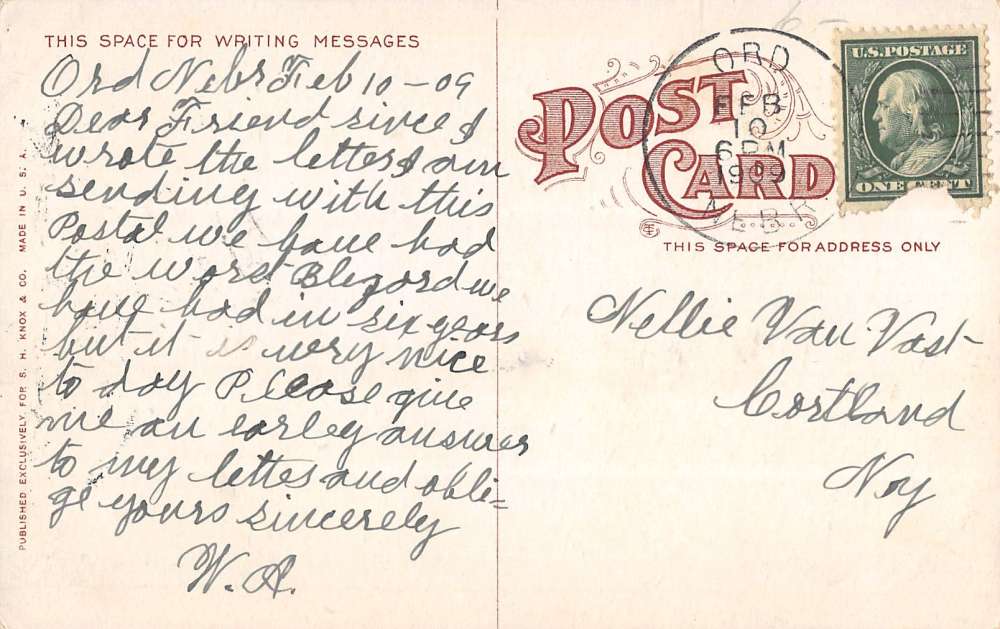 THIS SPACE FOR WRITING MESSAGES
Ord Nebr Feb 10-09
Dear Friend since I
wrote the letter I am
sending with this
Postal we have had
the worst Blezord we
have had in six years
but it is very nice
to day Please give
me an earley answer
to my letter and obli-
ge yours sincerely
W. A.
PUBLISHED EXCLUSIVELY, FOR S. H. KNOX & CO. MADE IN U. S. A.
POST
CARD
ORD
FEB
10
6 PM
1909
NEBR
U.S. POSTAGE
ONE CENT
THIS SPACE FOR ADDRESS ONLY
Nellie Van Vast
Cortland
Ny